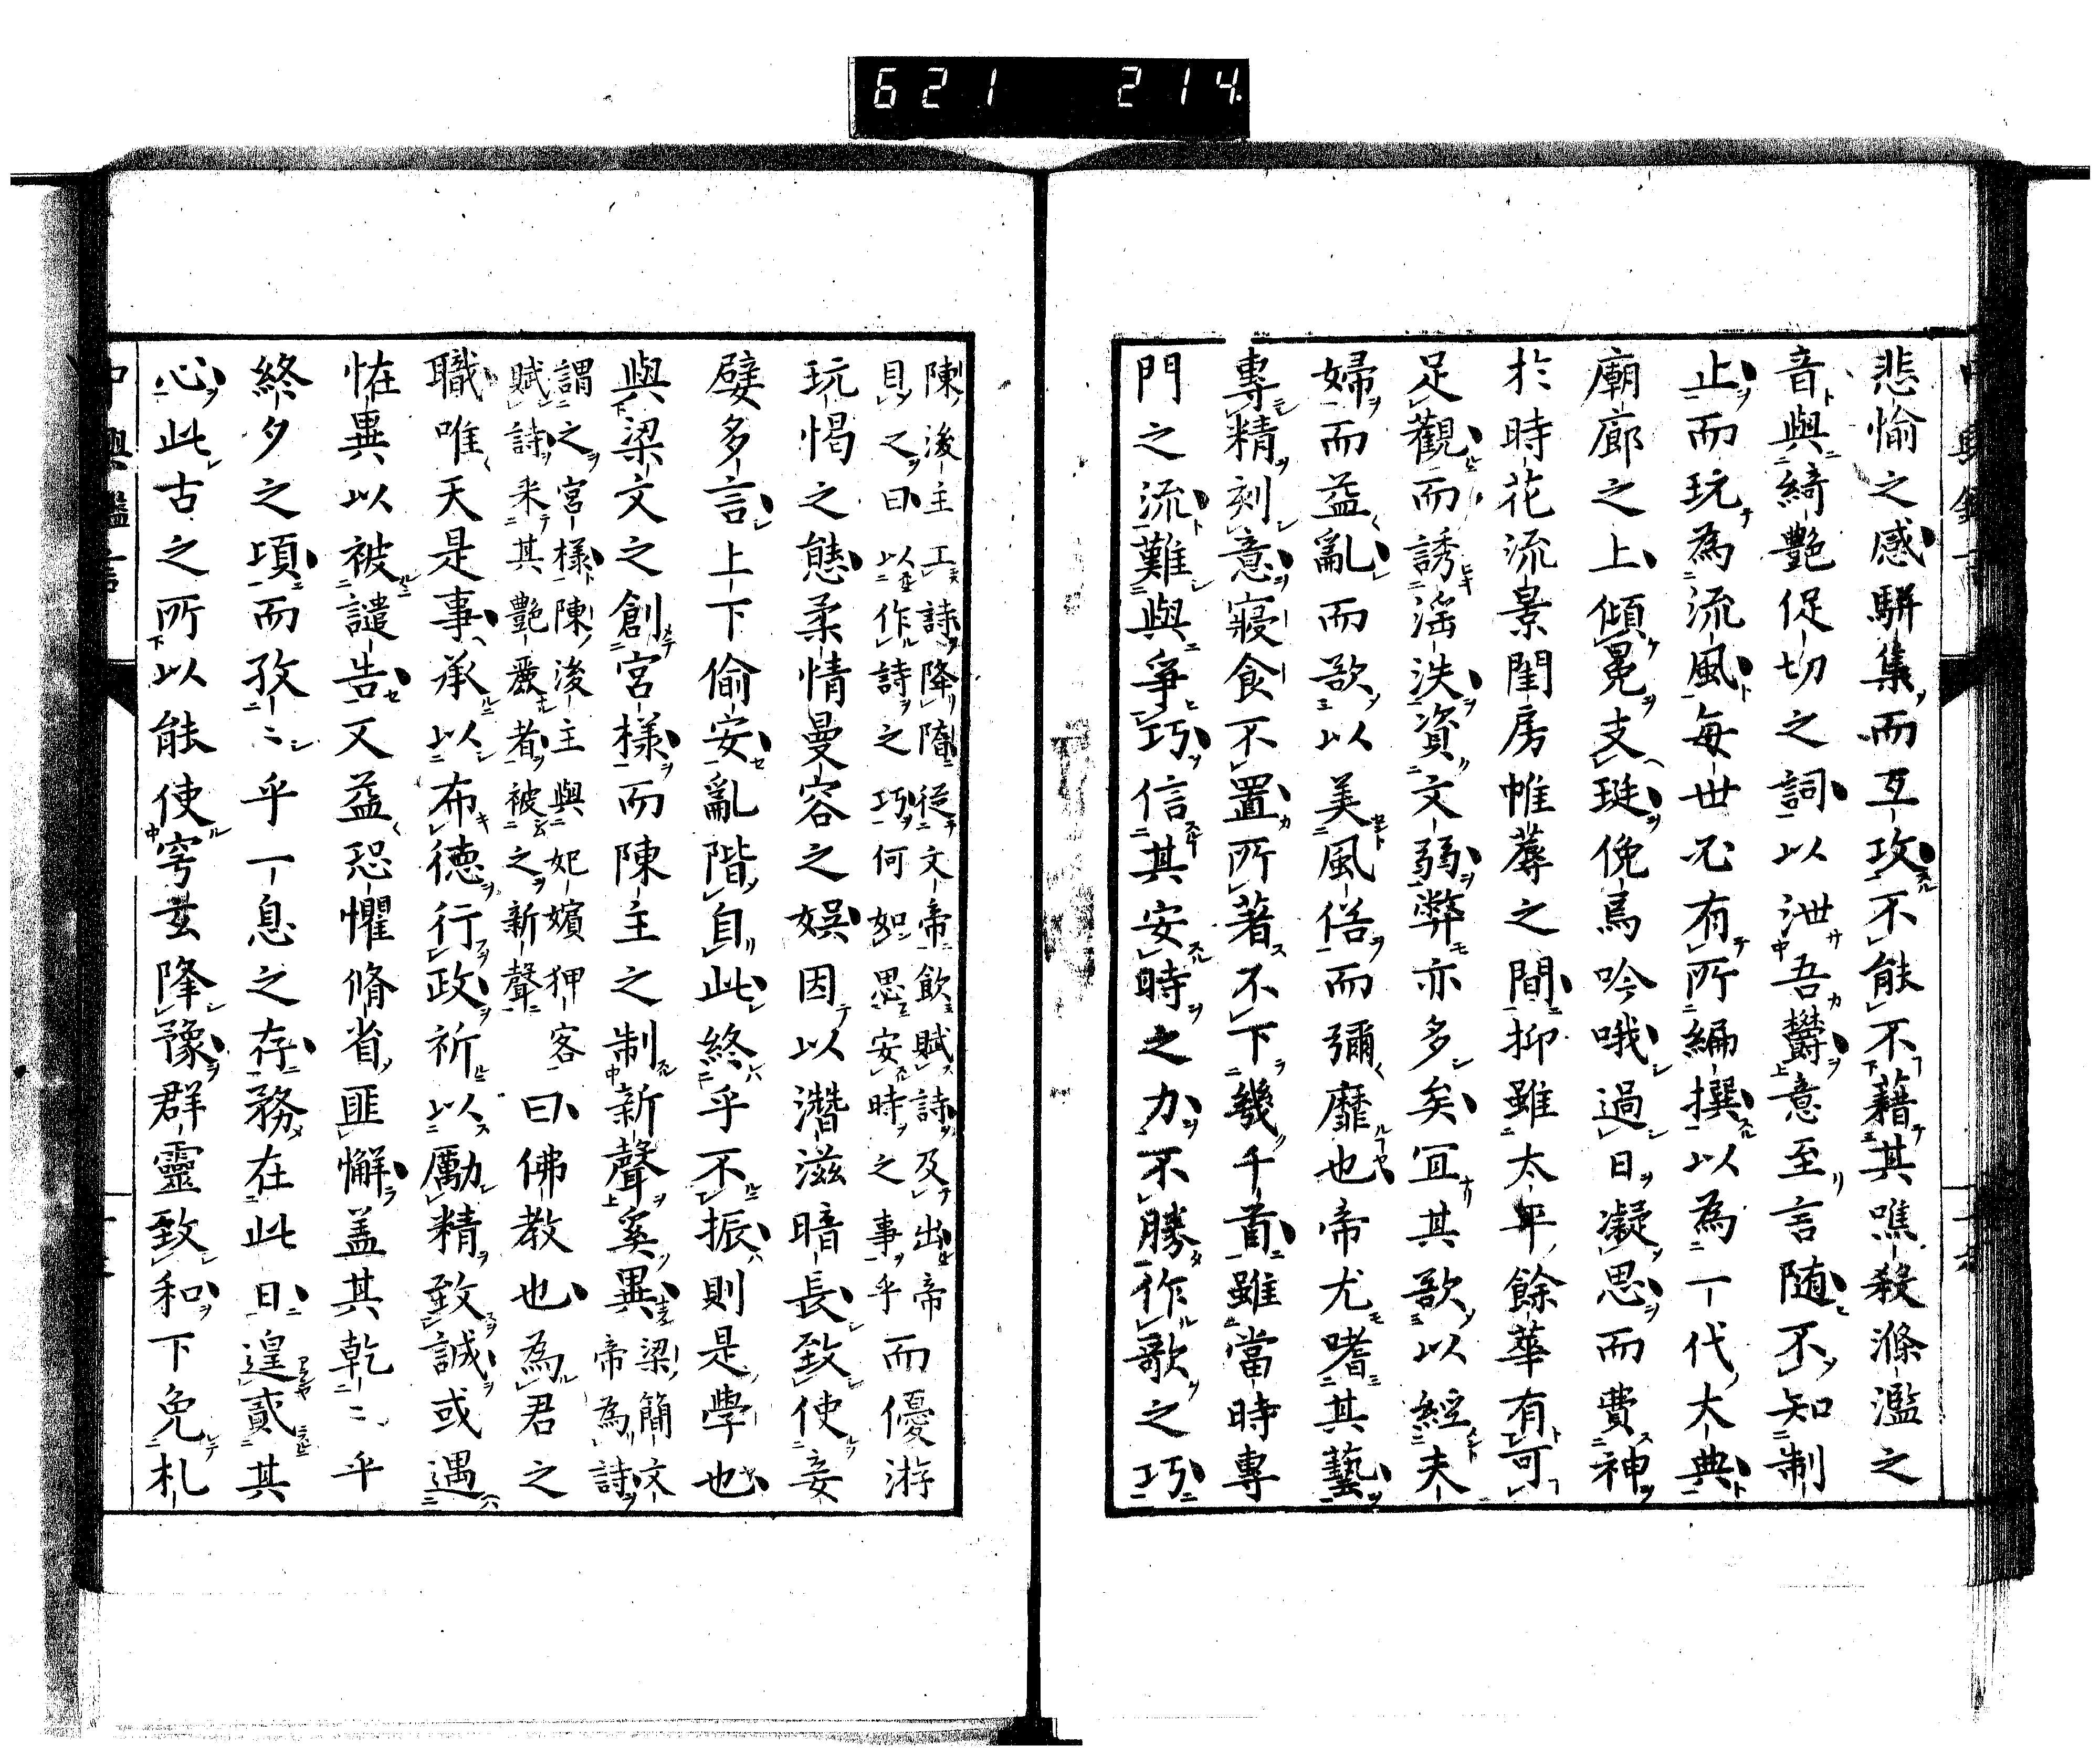 621 214
悲愉之感駢集而互攻不能不藉其噍殺滌濫之
音與綺艷促切之詞以泄吾欝意至言随不知制
止而玩為流風每世必有所編撰以為一代大典
廟廊之上傾冕支珽俛焉吟哦過日凝思而費神
於時花流景閨房帷蓐之間抑雖太平餘華有可
足觀而誘淫泆資文弱弊亦多矣冝其歌以經夫
婦而益亂而歌以美風俗而彌靡也帝尤嗜其藝
專精刻意寢食不置所著不下幾千首雖當時專
門之流難與爭巧信其安時之力不勝作歌之巧
陳後主工詩降隋從文帝飲賦詩及出帝
目之曰以作詩之巧何如思安時之事乎而優游
玩愒之態柔情曼容之娯因以潛滋暗長致使妾
嬖多言上下偷安亂階自此終乎不振則是學也
與梁文之創宮樣而陳主之制新聲奚異梁簡文帝為詩
謂之宮樣陳後主與妃嬪狎客
賦詩采其艷麗者被之新聲曰佛教也為君之
職唯天是事承以布德行政祈以勵精致誠或遇
恠異以被譴告又益恐懼脩省匪懈盖其乾〻乎
終夕之項而孜〻乎一息之存務在此日遑貳其
心此古之所以能使穹玄降豫群靈致和下免札
中興鑑言